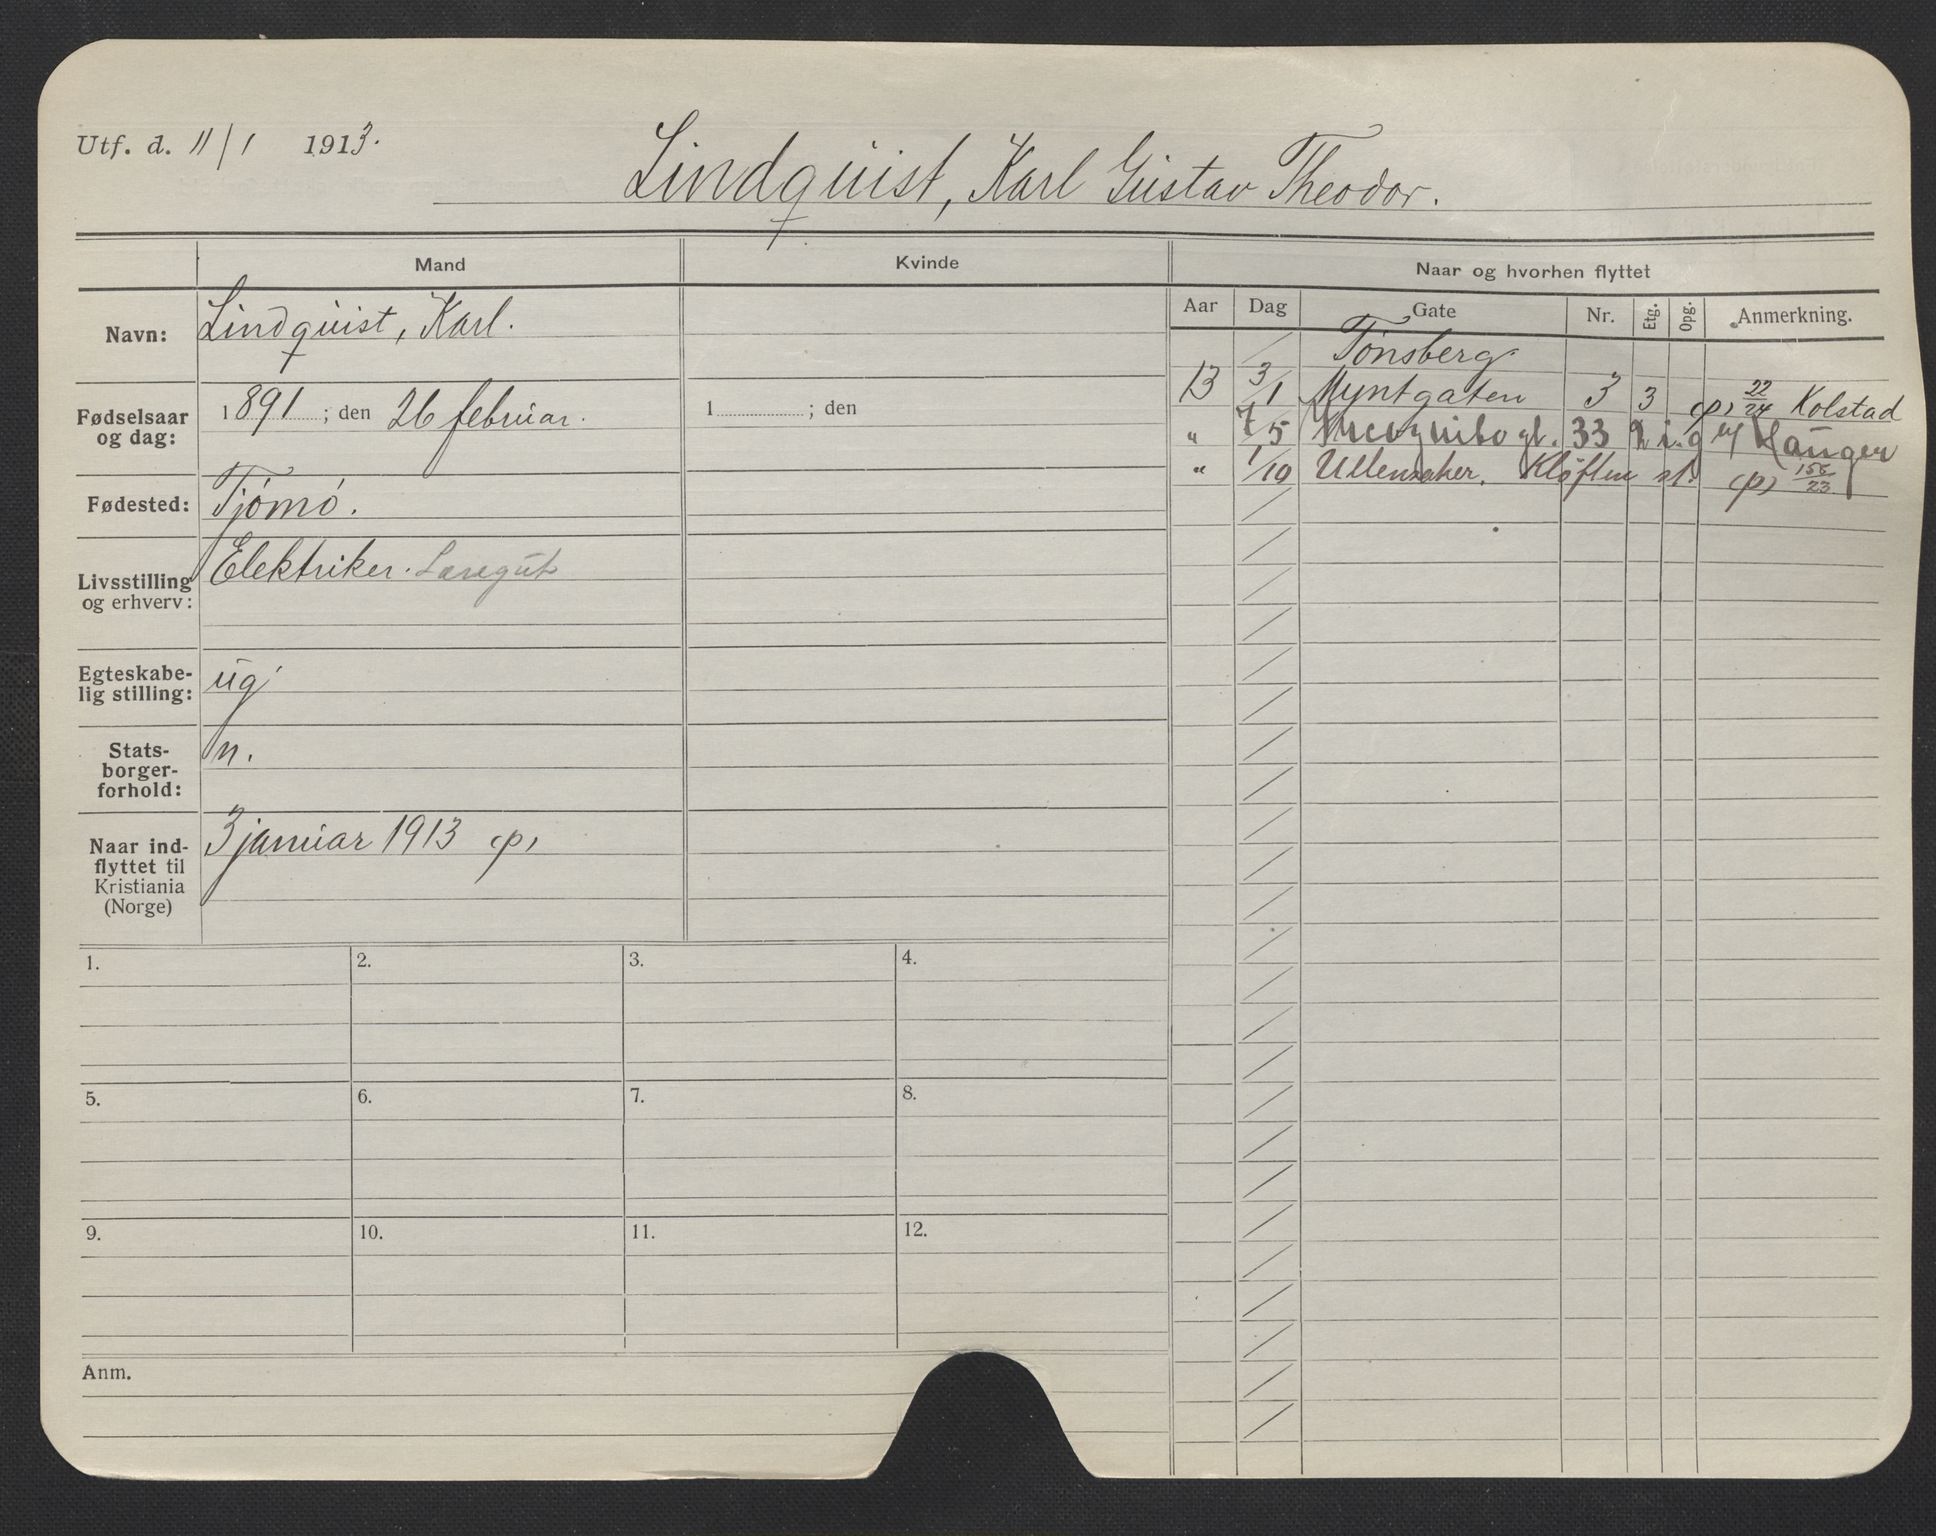 Utf. d. 11/1 1913.
Lindquist, Karl Gustav Theodor.
Mand
Kvinde
Naar og hvorhen flyttet
Navn: Lindquist, Karl.
Fødselsaar og dag: 1891; den 26 februar.
1 ; den
Fødested: Tjömö.
Livsstilling og erhverv: Elektriker.
Egteskabe-
lig stilling: ug
Stats-
borger-
forhold: n.
Naar ind-
flyttet til
Kristiania
(Norge)
3 januar 1913 (p)
Aar Dag Gate Nr. Etg. Opg. Anmerkning.
Tönsberg
13 3/1 Myntgaten 3 3 (p) 22/24 Kolstad
„ 7/5 33 Hauger
„ 1/10 Ullensaker. Kløften st. (p) 156/23
1. 2. 3. 4.
5. 6. 7. 8.
9. 10. 11. 12.
Anm.